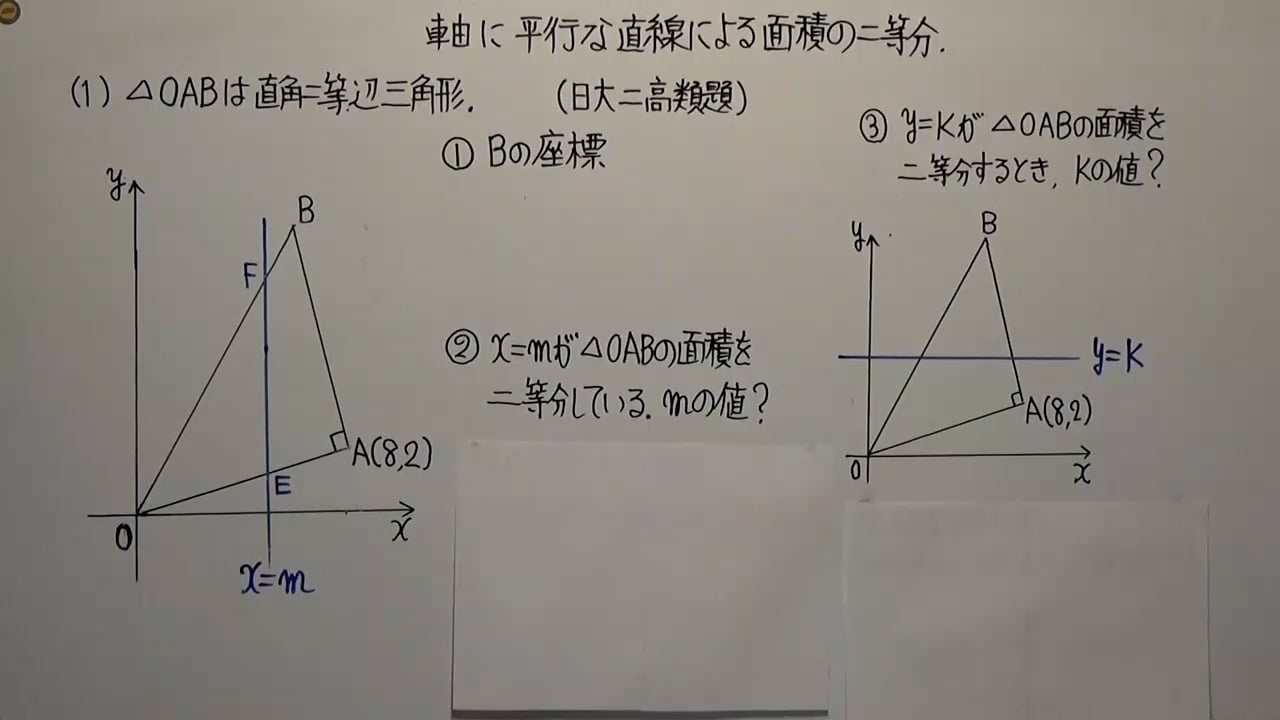 軸に平行な直線による面積の二等分.
(1) △OABは直角二等辺三角形.
(日大二高類題)
① Bの座標
y
B
F
A(8,2)
E
O
x
x=m
② x=mが△OABの面積を
二等分している. mの値?
③ y=Kが△OABの面積を
二等分するとき, Kの値?
y
B
y=K
A(8,2)
O
x